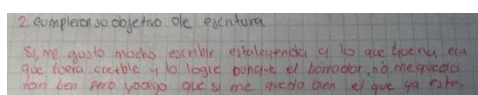 2. cumplieron su objetivo de escritura
Si, me gusto mucho escribir esta leyenda y lo que queria era
que fuera creible y lo logre aunque el borrador no me quedo
tan bien pero yo digo que si me quedo bien el que ya este.